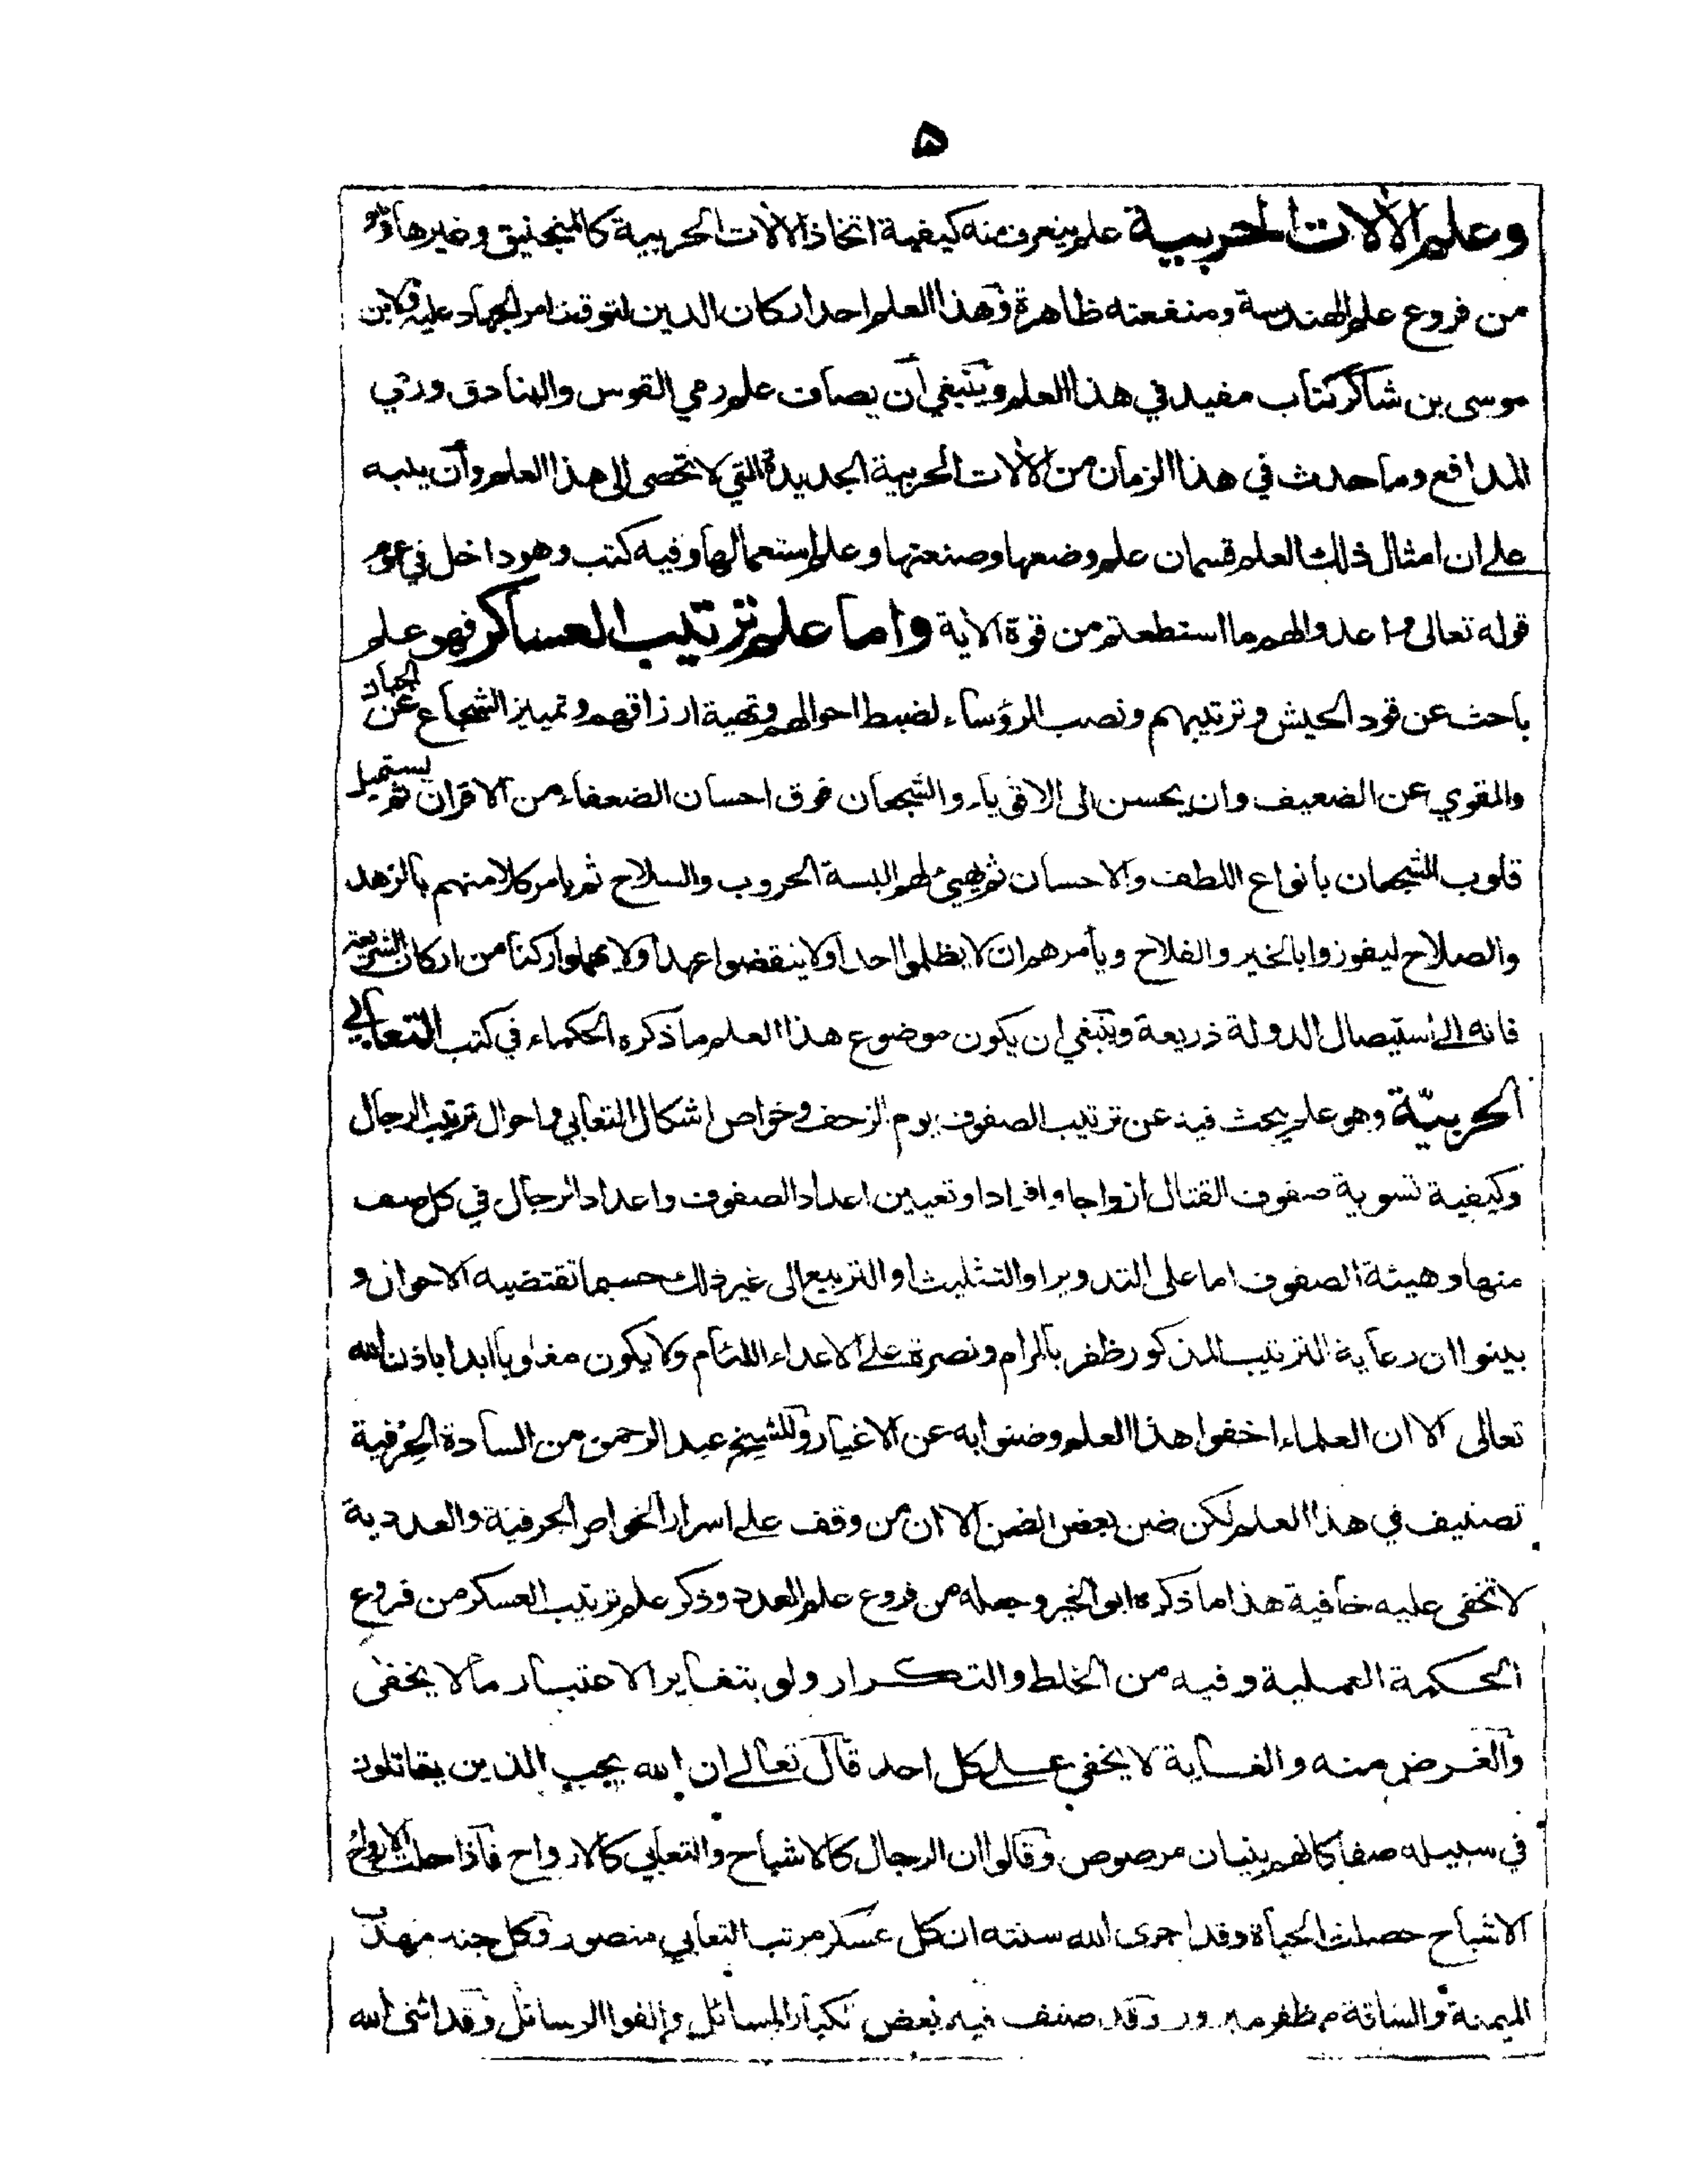 ٥
وعلم الآلات الحربية علم يتعرف منه كيفية اتخاذ الآلات الحربية كالمنجنيق وغيرها وهو
من فروع علم الهندسة ومنفعته ظاهرة وهذا العلم احد اركان الدين لتوقف امر الجهاد عليه ولابن
موسى بن شاكر كتاب مفيد في هذا العلم وينبغي أن يضاف علم رمي القوس والبنادق ورمي
المدافع وما حدث في هذا الزمان من الآلات الحربية الجديدة التي لا تحصى الى هذا العلم وأن ينبه
على ان امثال ذلك العلم قسمان علم وضعها وصنعتها وعلم استعمالها وفيه كتب وهو داخل في عموم
قوله تعالى واعدوا لهم ما استطعتم من قوة الآية واما علم ترتيب العساكر فهو علم
باحث عن قود الجيش وترتيبهم ونصب الرؤساء لضبط احوالهم وتهية ارزاقهم وتمييز الشجاع عن الجبان
والقوي عن الضعيف وان يحسن الى الاقوياء والشجعان فوق احسان الضعفاء من الاقران ثم يستميل
قلوب الشجعان بانواع اللطف والاحسان ثم يهيئ لهم البسة الحروب والسلاح ثم يامر كلا منهم بالزهد
والصلاح ليفوزوا بالخير والفلاح ويأمرهم ان لا يظلموا احدا ولا ينقضوا عهدا ولا يهملوا ركنا من اركان الشريعة
فانه الى استيصال الدولة ذريعة وينبغي ان يكون موضوع هذا العلم ما ذكره الحكماء في كتب التعابي
الحربيّة وهو علم يبحث فيه عن ترتيب الصفوف يوم الزحف وخواص اشكال التعابي واحوال ترتيب الرجال
وكيفية تسوية صفوف القتال ازواجا وافرادا وتعيين اعداد الصفوف واعداد الرجال في كل صف
منها وهيئة الصفوف اما على التدوير او التثليث او التربيع الى غير ذلك حسبما تقتضيه الاحوال و
بينوا ان رعاية الترتيب المذكور ظفر بالمرام ونصرة على الاعداء اللئام ولا يكون مغلوبا ابدا باذن الله
تعالى الا ان العلماء اخفوا هذا العلم وضنوا به عن الاغيار وللشيخ عبد الرحمن من السادة الحرفية
تصنيف في هذا العلم لكن ضن بعض الضن الا ان من وقف على اسرار الخواص الحرفية والعددية
لا تخفى عليه خافية هذا ما ذكره ابو الخير وجعله من فروع علم العدد وذكر علم ترتيب العسكر من فروع
الحكمة العملية وفيه من الخلط والتكرار ولو بتغاير الاعتبار ما لا يخفى
والغرض منه والغاية لا يخفى على كل احد قال تعالى ان الله يحب الذين يقاتلون
في سبيله صفا كانهم بنيان مرصوص وقالوا ان الرجال كالاشباح والتعابي كالارواح فاذا حلت الارواح
الاشباح حصلت الحياة وقد اجرى الله سنته ان كل عسكر مرتب التعابي منصور وكل جند مهذب
الميمنة والساقة مظفر وقد صنف فيه بعض كبار المسائل والفوا الرسائل وقد اثنى الله